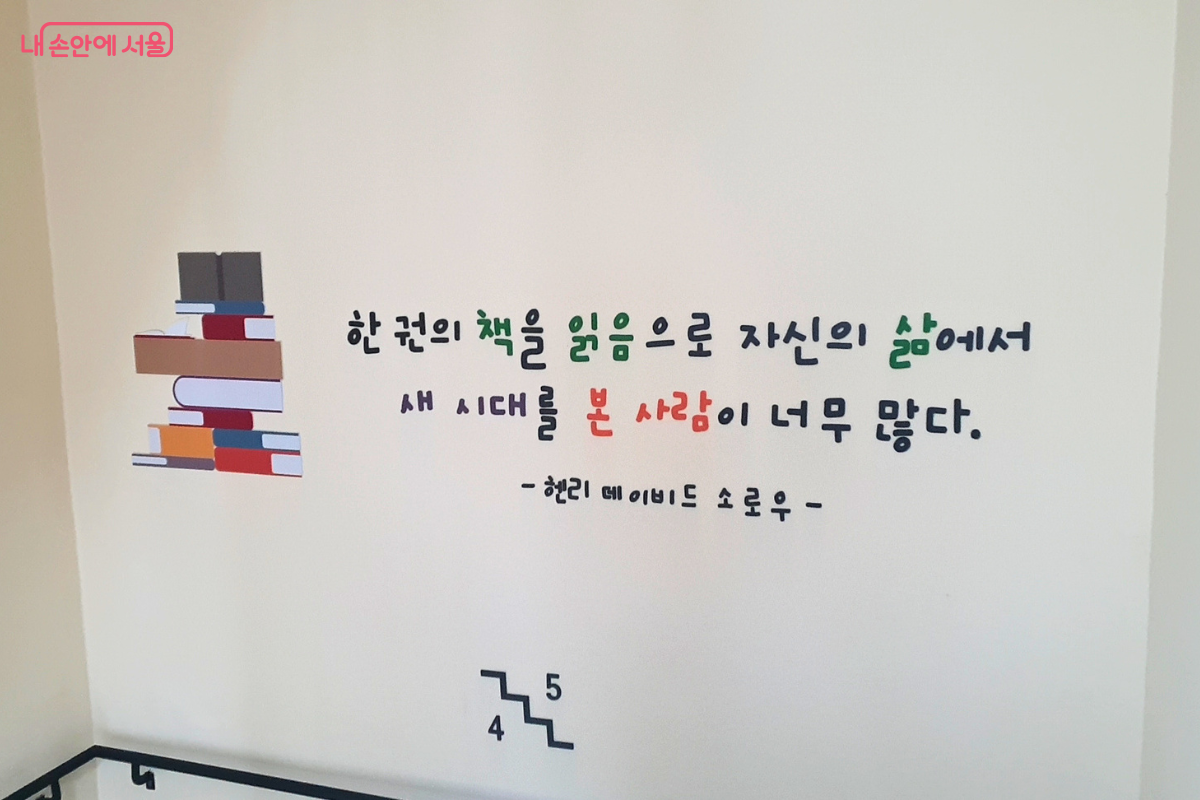 내 손안에 서울
한 권의 책을 읽음으로 자신의 삶에서
새 시대를 본 사람이 너무 많다.
- 헨리 데이비드 소로우 -
5
4